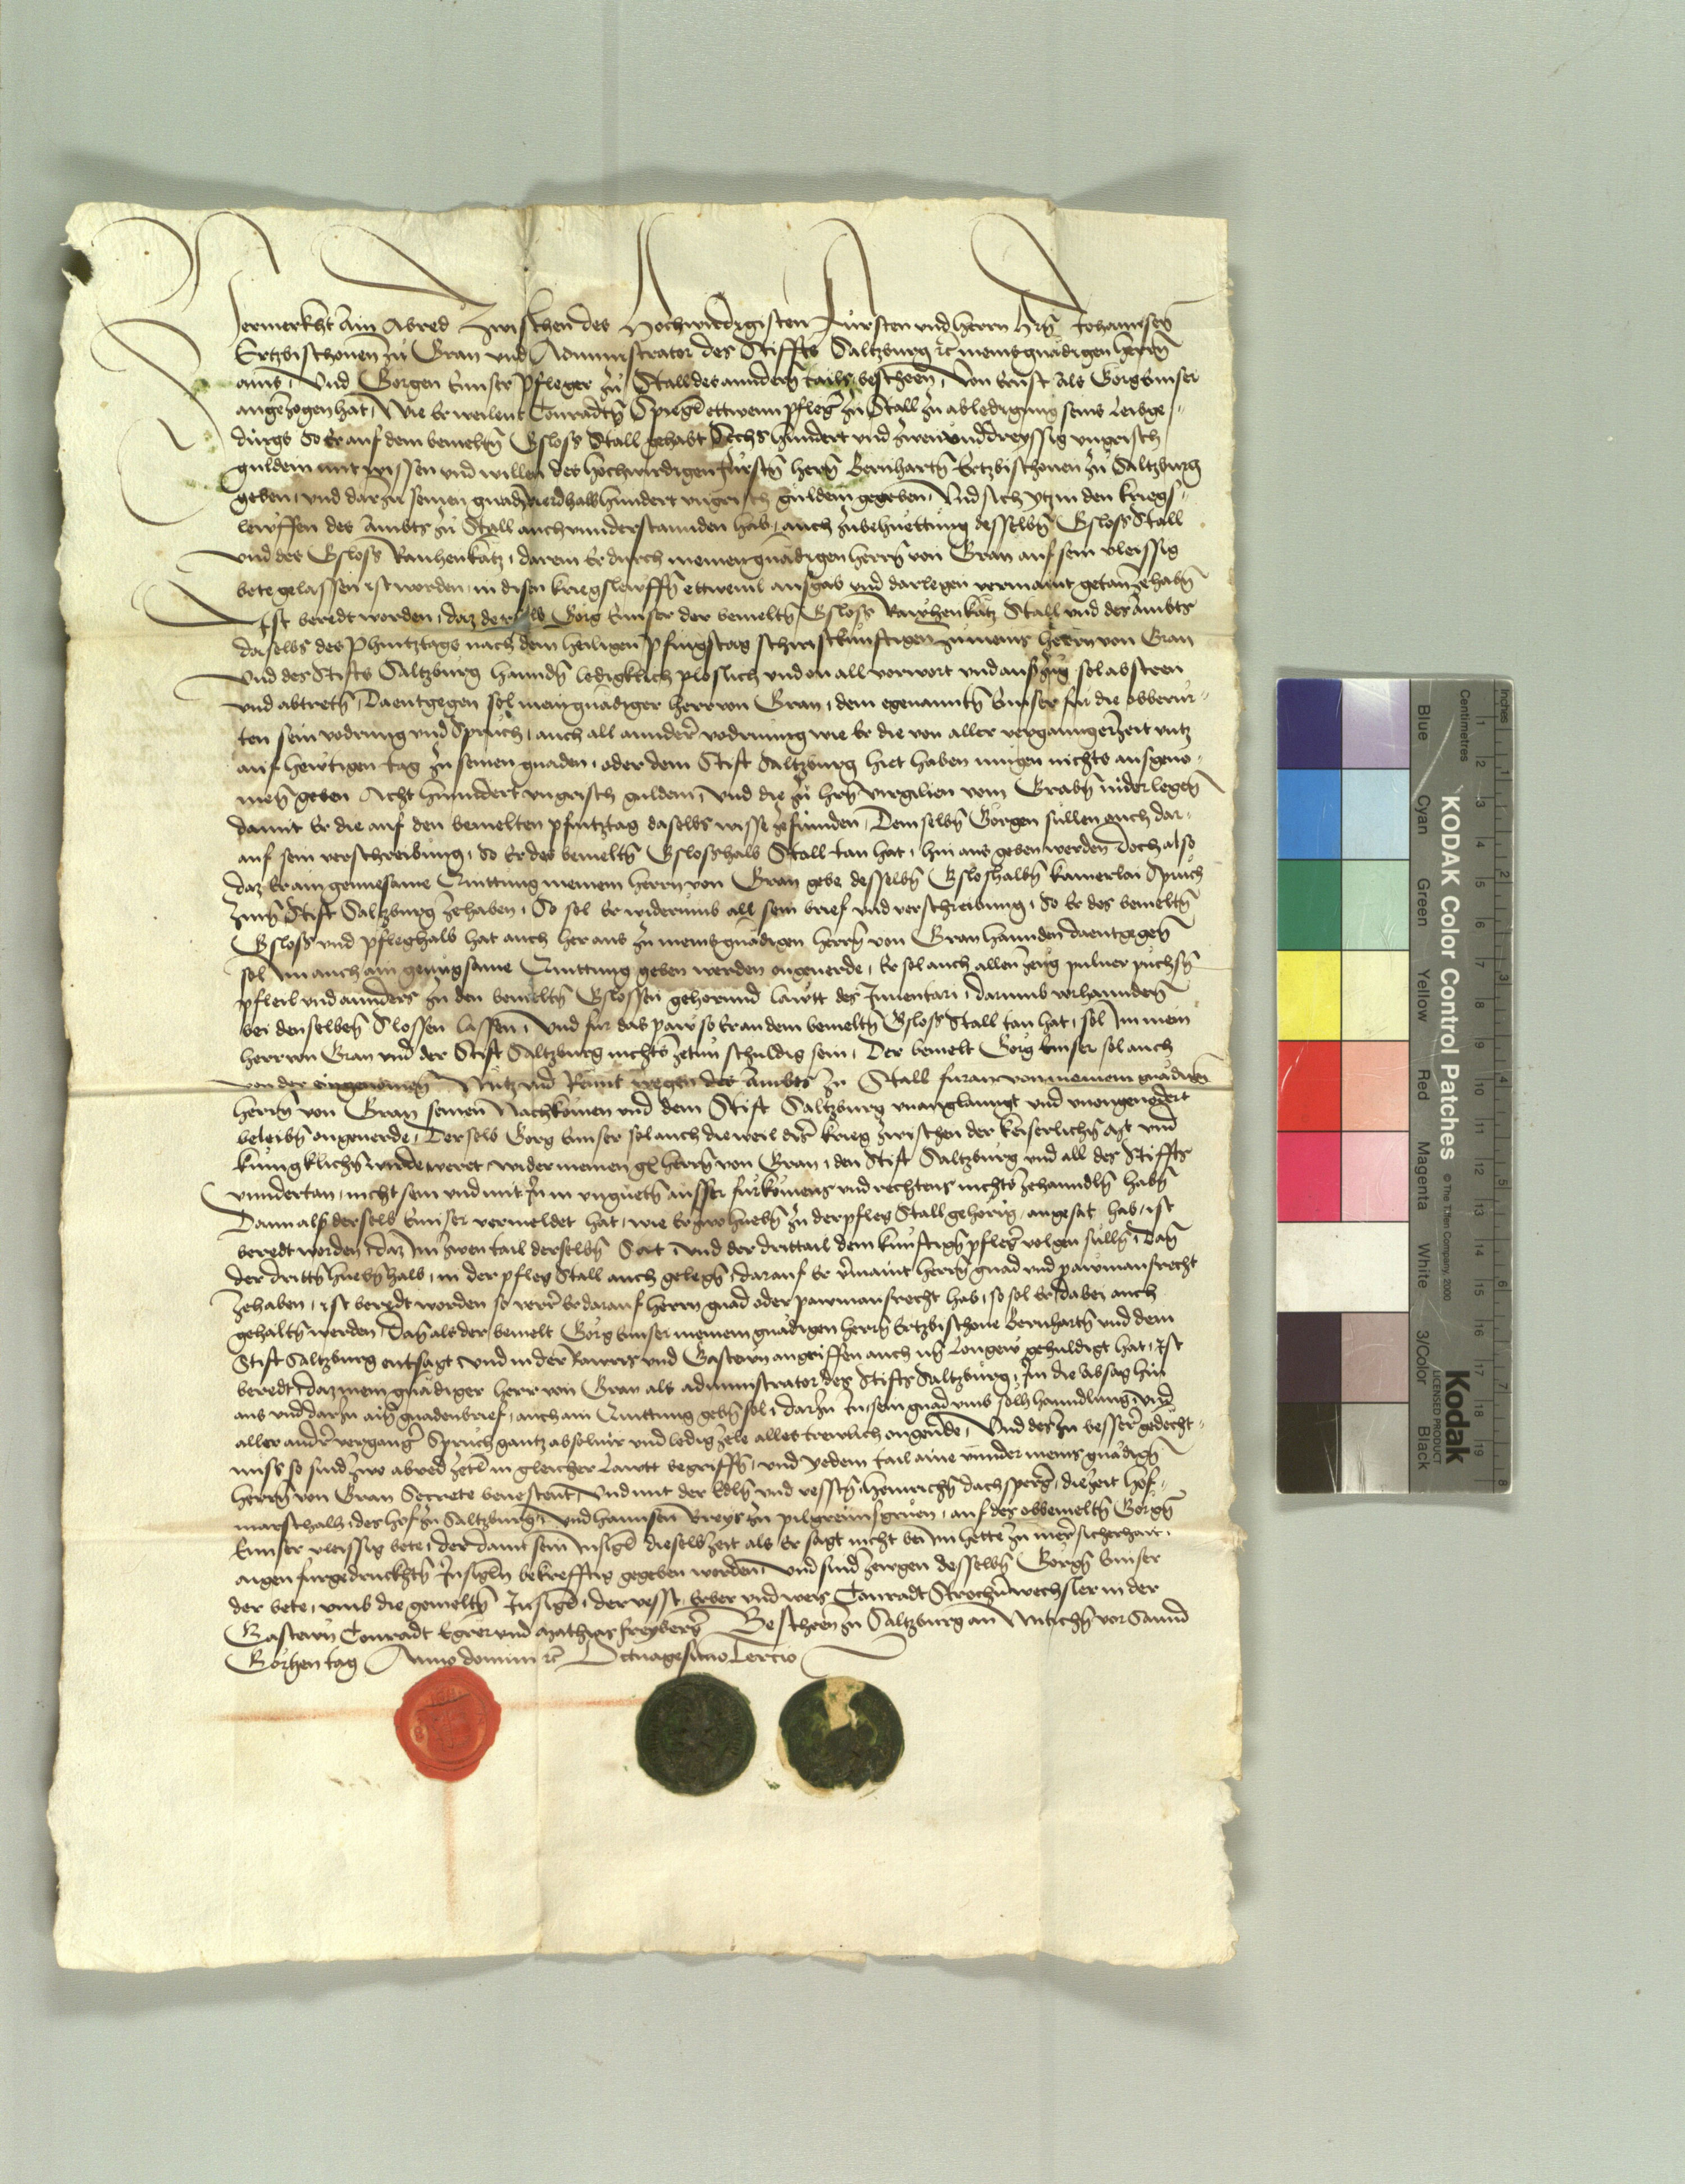 Vermerkht Ain Abred Zwischen des Hochwirdigisten Fursten und Herrn Hern Johannsen
Ertzbischouen zu Gran und Administrator des Stiffts Saltzburg etc meins gnadigen Herrn
ains, Vnd Gorgen Emser Pfleger zu Stall des anndern tails, bescheen, Von Erst Als Gorg Emser
angetzogen hat, Wie Er weilent Conradtn Spiegl ettwenn pfleger zu Stall zu abledigung seins Leibge-
dings So Er auf dem bemeltn Gsloss Stall gehabt Sechs hundert und zwenunddreyssig ungrisch
guldein mit wissen und willen des hochwirdigen Furstn hern Bernhartn Ertzbischouen zu Saltzburg
geben, und darzu seinen gnadn vierdhalbhundert ungrisch guldein gegeben, Vnd sich ytz in den kriegs-
leuffen des Ambts zu Stall auch vnnderstannden hab, auch zubehuettung desselbn Gsloss Stall
und des Gsloss Rauhenkatz, darein Er durch meinen gnadigen herrn von Gran auf sein vleissig
bete gelassen ist worden, in disen kriegsleuffn ettweuil ausgab und darlegen vermaint getan zehabn
Ist beredt worden, daz derselb Gorg Emser der bemeltn Gsloss Rauhenkatz Stall und des Ambts
daselbs des Phintztags nach dem heiligen Pfingstag schiristkunftigen zu meins herrn von Gran
und des Stifts Saltzburg hanndn ledigklich ploslich und on all vorwort und auszug sol absteen
und abtretn, Daentgegen sol mein gnadiger herr von Gran, dem egenanntn Emser fur die obberur-
ten sein vodrung und Spruch, auch all annder vodrung wie Er die von aller vergangner zeit vntz
auf hewtigen tag zu seinen gnaden, oder dem Stift Saltzburg hiet haben mugen nichts ausgeno-
men geben Acht hunndert ungrisch guldein, und die zu hern virgilien vom Grabn niderlegen
damit Er die auf den bemelten pfintztag daselbs wisse zefinnden, Demselbn Gorgen sullen auch dar-
auf sein verschreibung, so Er des bemeltn Gslosshalb Stall tan hat, hin aus geben werden doch also
daz Er ain gennesame Quittung meinem herrn von Gran gebe desselbn Gsloshalbn kainerlai Spruch
zum Stift Saltzburg zehaben, So sol Er widerumb all sein brief und verschreibung, so Er des bemeltn
Gsloss und pfleghalb hat auch heraus zu meins gnadigen herrn von Gran hannden daentgegen
sol Im auch ain genugsame Quittung geben werden ongeuerde, Er sol auch allen zeug puluer puchsn
pfleil und annders zu den bemeltn Gslossen gehorund lautt des Inuentari, darumb vorhannden
bei denselben Slossen lassen, Vnd fur das paw so Er an dem bemeltn Gsloss Stall tan hat, sol Im mein
herr von Gran und der Stift Saltzburg nichts zetun schuldig sein, Der bemelt Gorg Emser sol auch
von der eingenomen Nutz und Rannt wegen des Ambts zu Stall furan von meinem gnadigen
herrn von Gran seinen Nachkomen und dem Stift Saltzburg unanglanngt und unongeuordert
beleibn ongeuerde, Derselb Gorg Emser sol auch dieweil diser krieg zwischen der keiserlichn Mt und
kunigklichn wirde weret wider meinen gn herrn von Gran, den Stift Saltzburg und all des Stiffts
vnndertan, nicht sein und mit In in unguetn ausser furkomens und rechtens nichts zehanndln habn
Dann als derselb Emser vermeldet hat, wie Er zwo huebn zu der pfleg Stall gehorig, angesat hab, ist
beredt worden, daz Im zwen tail derselbn Sat, und der drittail dem kunftign pfleger volgen sulln, Dan
der drittn huebn halb, in der pfleg Stall auch gelegn, darauf Er vermaint herrn gnad und pawmansrecht
zehaben, ist beredt worden so verr Er darauf herrn gnad oder pawmansrecht hab, so sol Er dabei auch
gehaltn werden, Dan als der bemelt Gorg Emser meinem gnadigen herrn Ertzbischoue Bernhartn und dem
Stift Saltzburg entsagt und in der Rawris und Gastewn angriffen auch im Longew gehuldigt hat, Ist
beredt, daz mein gnadiger herr von Gran als administrator des Stifts Saltzburg, Im die Absag hin
aus und darzu ain gnadenbrief, auch ain Quittung gebn sol, darzu In sein gnad umb solh hanndlung und
aller ander verganger Spruch gantz absoluir und ledig zele alles trewlich ongeuerde, Vnd des zu besser gedecht-
nuss so sind zwo abred zetl in gleicher Lautt begriffn, und yedem tail aine vnnder meins gnadign
herrn von Gran Secrete beuestent, Vnd mit der Edln und vesstn Hainrichn dachsperg, dietzeit hof-
marschalh, des hofs zu Saltzburg, und hannsen Kreys zu pilgreimsgruen, auf des obbemeltn Gorgn
Emser vleissig bete, der damt sein Insigl dieselb zeit als Er sagt nicht bei Im hette zu merer sicherhait,
aigen furgedruckhtn Insigln bekrefftig gegeben worden, Vnd sind zewgen desselbn Gorgn Emser
der bete, umb die gemeltn Insigl, der vesst, Erber und weis Conradt Strochner wechsler in der
Gastewn Conradt Egrer und Mathias freyberger Bescheen zu Saltzburg an Mitichn vor Sannd
Gorgen tag Anno domini etc Octuagesimo Tercio
KODAK Color Control Patches
© The Tiffen Company, 2000
Kodak
LICENSED PRODUCT
Inches
Centimetres
Blue
Cyan
Green
Yellow
Red
Magenta
White
3/Color
Black